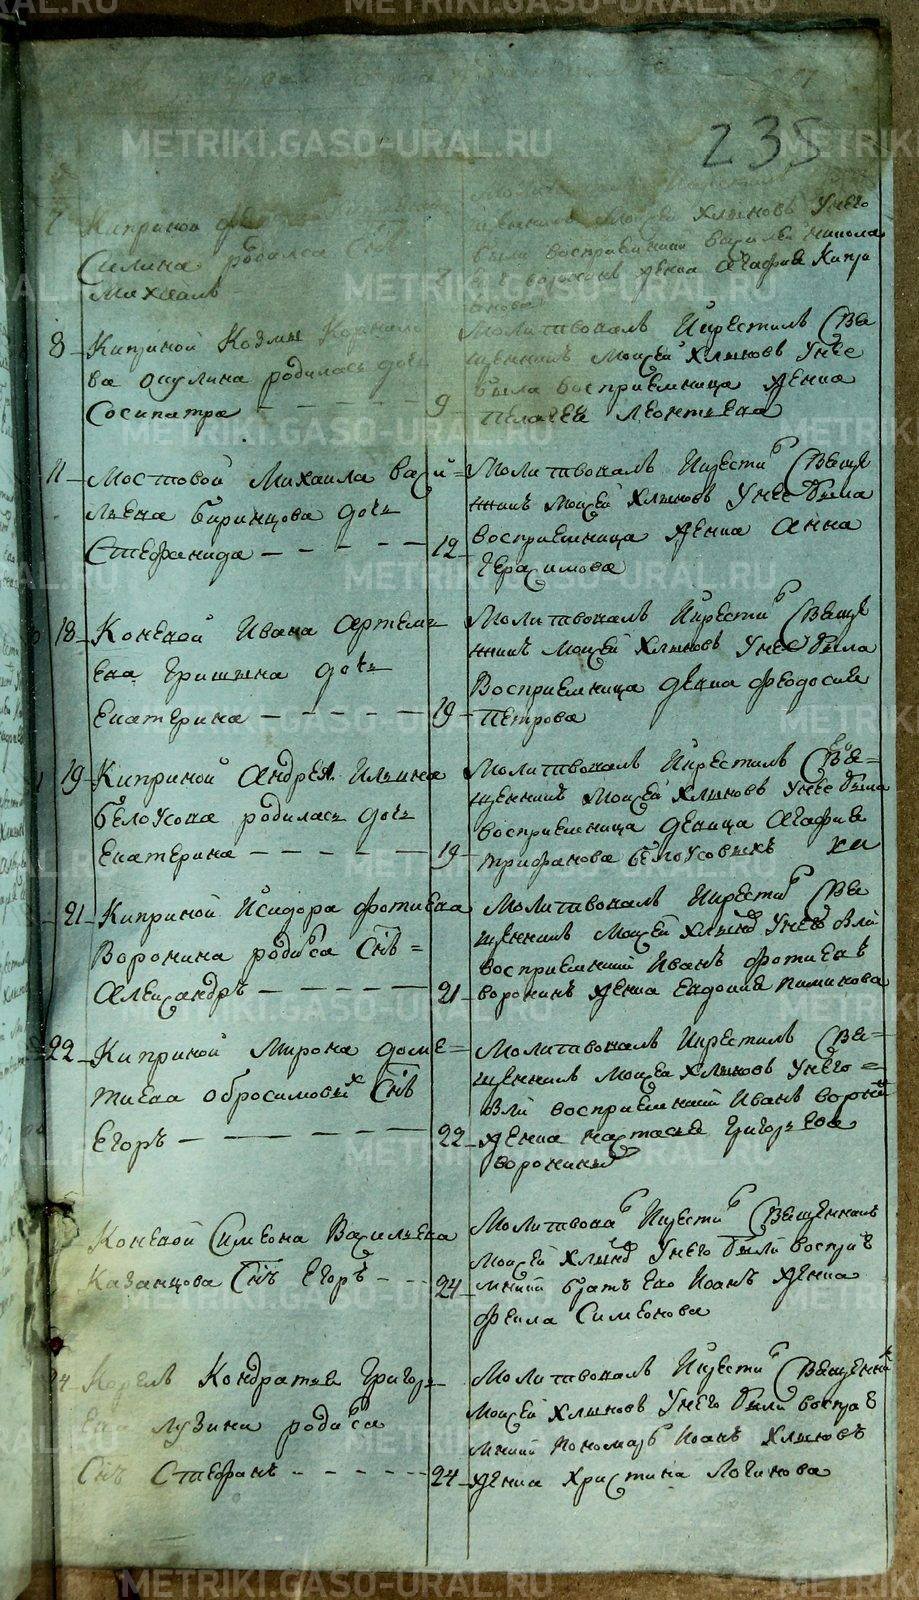 235
7 Киприной
Силина родился снъ
Михаилъ
Молитвовалъ и крестилъ
щенникъ Моисей Хлыновъ у него
были восприемники Василей Никола
девка Агафия Кипри
янова
8 Киприной Козмы Корнило
ва Окулина родилась дочь
Сосипатра 9
Молитвовалъ и крестилъ Свя
щенникъ Моисей Хлыновъ у нее
была восприемница девка
Пелагея Леонтьева
11 Мостовой Михаила Васи
льева Биринцова дочь
Стефанида 12
Молитвовалъ и крести Свяще
нникъ Моисей Хлыновъ у нее была
восприемница девка Анна
Герасимова
18 Коневой Ивана Артемь
ева Гришина дочь
Екатерина 19
Молитвовалъ и крести Свяще
нникъ Моисей Хлыновъ у нее была
Восприемница девка Феодосия
Петрова
19 Киприной Андрея Ильина
Белоусова родилась дочь
Екатерина 19
Молитвовалъ и крестилъ Свя
щенникъ Моисей Хлыновъ у нее была
восприемница девица Агафия
Трифанова Белоусовыхъ
21 Киприной Исидора Фотиева
Воронина родися снъ
Александръ 21
Молитвовалъ и крести Свя
щенникъ Моисей Хлынов у него были
восприемники Иванъ Фотиевъ
Воронинъ девка Евдокия Пименова
22 Киприной Мирона Доме
тиева Обросимовых снъ
Егоръ 22
Молитвовалъ и крестилъ Свя
щенникъ Моисей Хлыновъ у него
были восприемники Иванъ Ворнин
девка Настасья Григорьева
Воронины
Коневой Симеона Васильева
Казанцова снъ Егоръ 24
Молитвова и крести Священникъ
Моисей Хлынов у него были воспри
мники братъ Ево Иоанъ девка
Фекла Симеонова
24 Кондратья Григорь
ева Лузина родися
снъ Стефанъ 24
Молитвовалъ и крести Священник
Моисей Хлыновъ у него были воспре
мники Пономарь Иоанъ Хлыновъ
девка Христина Логинова
METRIKI.GASO-URAL.RU